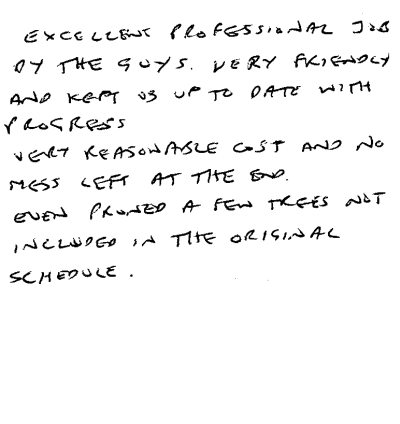 EXCELLENT PROFESSIONAL JOB
BY THE GUYS. VERY FRIENDLY
AND KEPT US UP TO DATE WITH
PROGRESS
VERY REASONABLE COST AND NO
MESS LEFT AT THE END.
EVEN PRUNED A FEW TREES NOT
INCLUDED IN THE ORIGINAL
SCHEDULE.